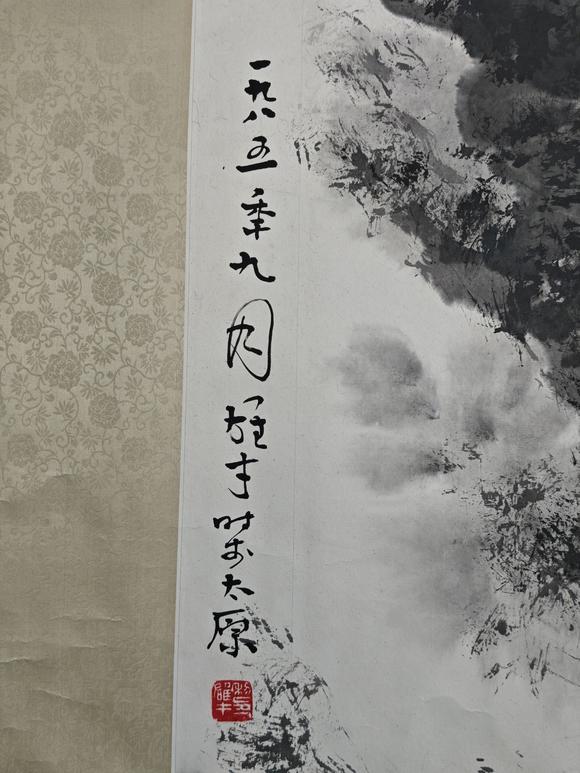 一九八五年九月雄时太原